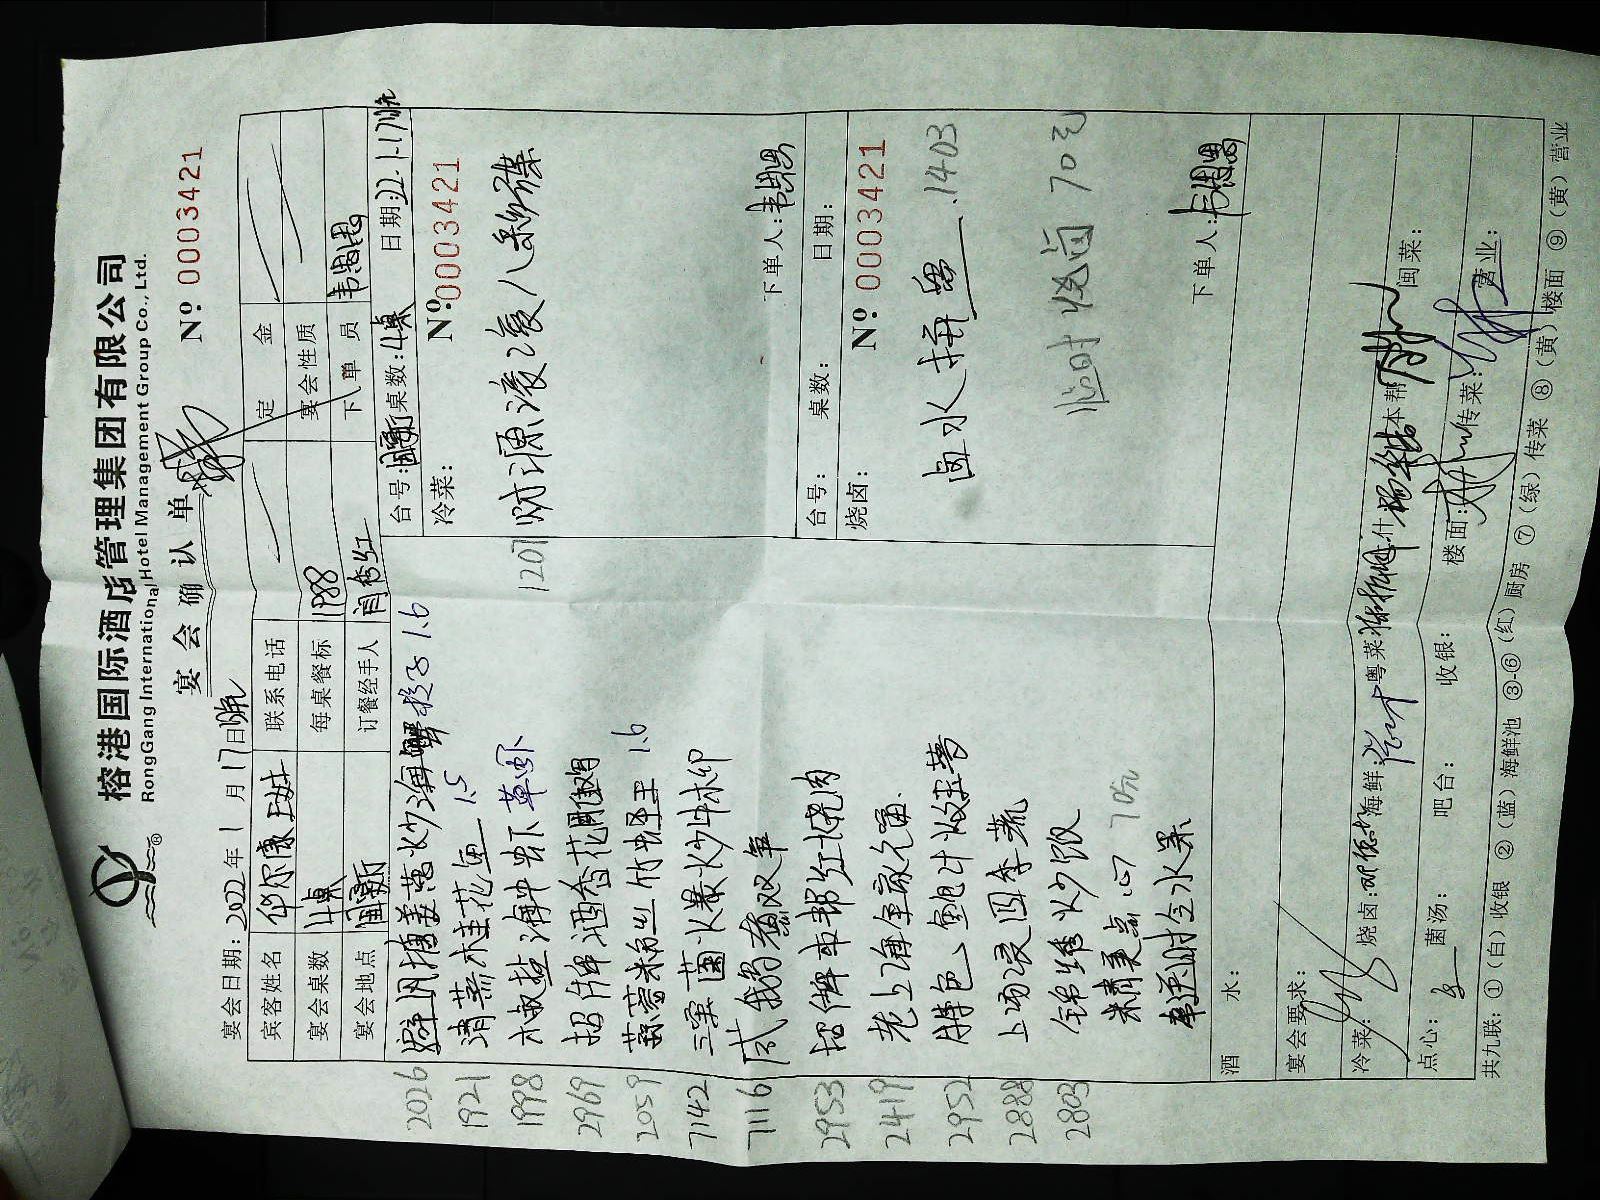 榕港国际酒店管理集团有限公司
RongGang International Hotel Management Group Co., Ltd.
®
宴会确认单
Nº 0003421
宴会日期: 2022年1月17日晚
宾客姓名 华尔康 联系电话 定金
宴会桌数 4桌 每桌餐标 1988 宴会性质
宴会地点 国新 订餐经手人 肖秀红 下单员
2026 避风塘姜葱炒海蟹 1.6
1921 清蒸桂花鱼 1.5
1998 椒盐海中虾 草虾
2969 招牌酒香花雕鸡
2059 蒜蓉粉丝竹蛏王 1.6
7142 三菜菌火爆炒牛柳
7116 咸我笋蒸双笋
2953 招牌本邦红烧肉
2419 老上海全家福
2952 特色鲍汁
2888 上汤浸四季蔬
2803 锦绣炒饭
精美点心 70元
奉送时令水果
台号: 国新 桌数: 4桌 日期: 22.1.17晚
冷菜: Nº: 0003421
1207 财源滚滚八彩碟
下单人:
台号: 桌数: 日期:
烧卤: Nº: 00003421
卤水拼盘 1403
临时烧卤 70元
下单人:
酒水:
宴会要求:
冷菜: 烧卤: 海鲜: 粤菜 什 本帮 闽菜:
点心: 菌汤: 吧台: 收银: 楼面: 传菜: 营业:
共九联: ①(白)收银 ②(蓝)海鲜池 ③-⑥(红)厨房 ⑦(绿)传菜 ⑧(黄)楼面 ⑨(黄)营业